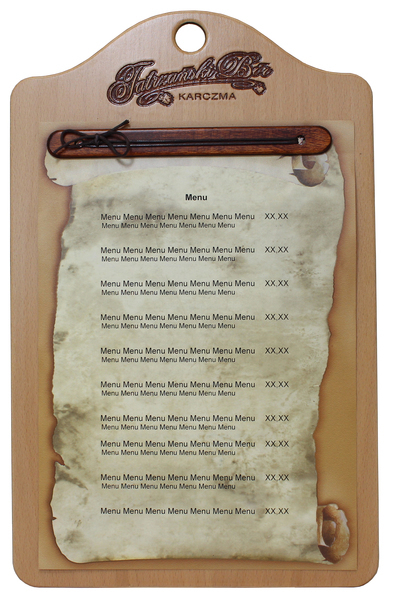 Tatrzański Bór
KARCZMA
Menu
Menu Menu Menu Menu Menu Menu Menu XX,XX
Menu Menu Menu Menu Menu Menu
Menu Menu Menu Menu Menu Menu Menu XX,XX
Menu Menu Menu Menu Menu Menu
Menu Menu Menu Menu Menu Menu Menu XX,XX
Menu Menu Menu Menu Menu Menu
Menu Menu Menu Menu Menu Menu Menu XX,XX
Menu Menu Menu Menu Menu Menu
Menu Menu Menu Menu Menu Menu Menu XX,XX
Menu Menu Menu Menu Menu Menu
Menu Menu Menu Menu Menu Menu Menu XX,XX
Menu Menu Menu Menu Menu Menu
Menu Menu Menu Menu Menu Menu Menu XX,XX
Menu Menu Menu Menu Menu Menu
Menu Menu Menu Menu Menu Menu Menu XX,XX
Menu Menu Menu Menu Menu Menu
Menu Menu Menu Menu Menu Menu Menu XX,XX
Menu Menu Menu Menu Menu Menu
Menu Menu Menu Menu Menu Menu Menu XX,XX